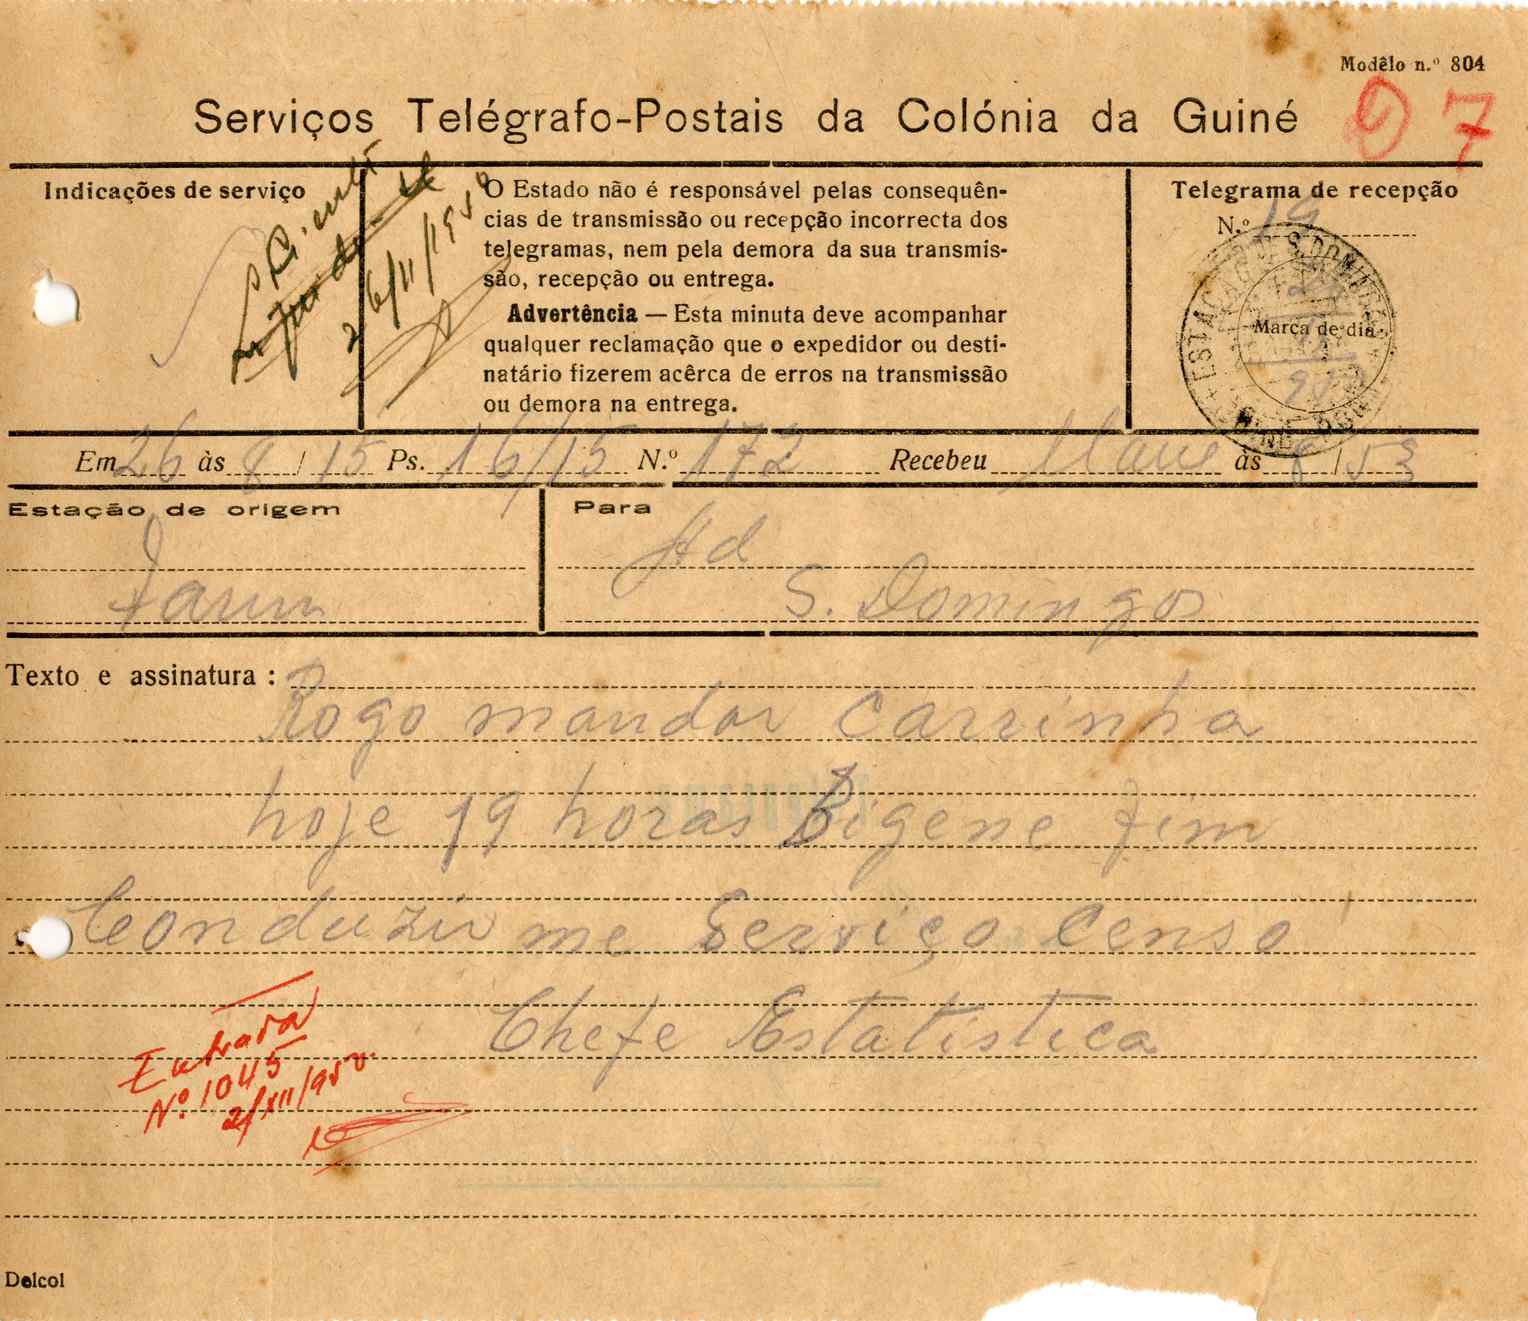 Modêlo n.º 804
Serviços Telégrafo-Postais da Colónia da Guiné
7
Indicações de serviço
26/11/1950
O Estado não é responsável pelas consequên-
cias de transmissão ou recepção incorrecta dos
telegramas, nem pela demora da sua transmis-
são, recepção ou entrega.
Advertência — Esta minuta deve acompanhar
qualquer reclamação que o expedidor ou desti-
natário fizerem acêrca de erros na transmissão
ou demora na entrega.
Telegrama de recepção
N.º 19
ESTAÇÃO S. DOMINGOS
Marca de dia
Em 26 às 8/15 Ps. 16/15 N.º 172 Recebeu às 8/53
Estação de origem
Farim
Para
Ad
S. Domingos
Texto e assinatura :
Rogo mandar Carrinha
hoje 19 horas Bigene fim
Conduzir me Serviço Censo
Chefe Estatistica
Entrada
Nº 1045
2/XII/950
Delcol